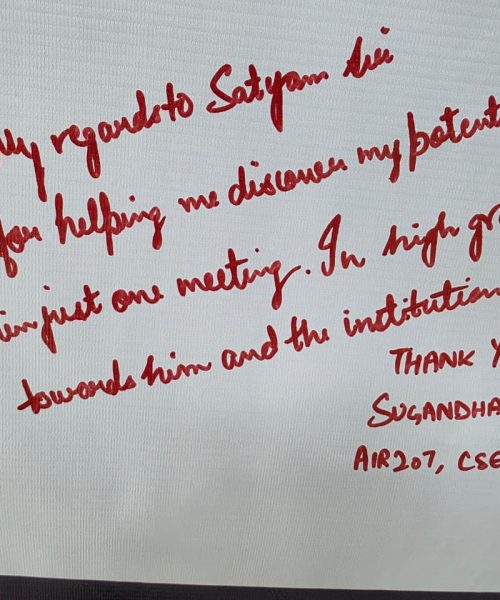 My regards to Satyam Sir
for helping me discover my potent
in just one meeting. In high gr
towards him and the institution
THANK Y
SUGANDHA
AIR207, CSE